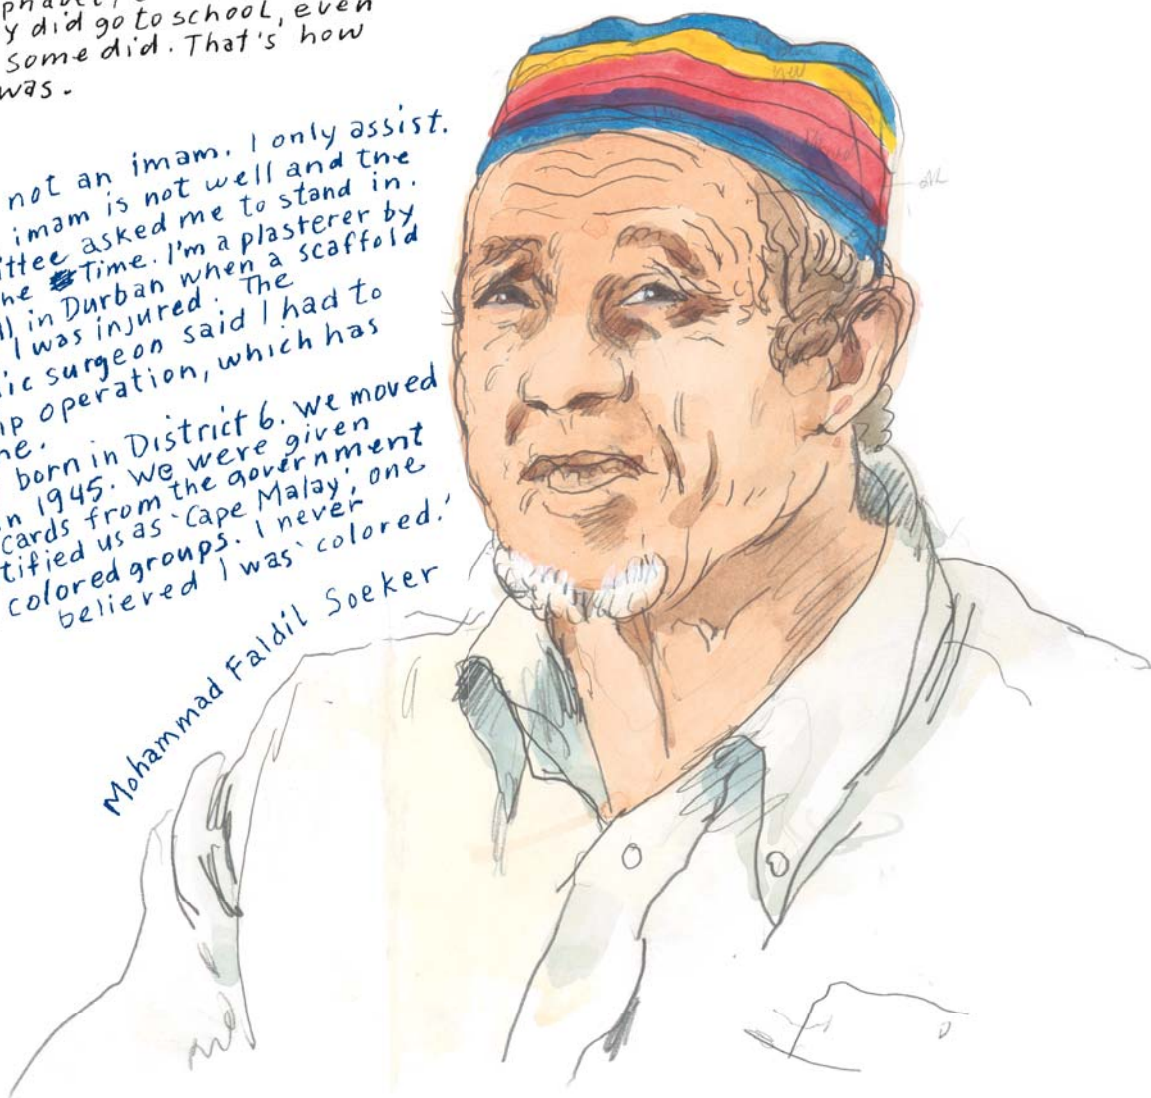 y did go to school, even
some did. That's how
was.
not an imam. I only assist.
imam is not well and the
ittee asked me to stand in.
he Time. I'm a plasterer by
ll in Durban when a scaffold
I was injured. The
ic surgeon said I had to
ip operation, which has
ne.
born in District 6. We moved
n 1945. We were given
cards from the government
tified us as 'Cape Malay', one
colored groups. I never
believed I was 'colored.'
Mohammad Faldil Soeker